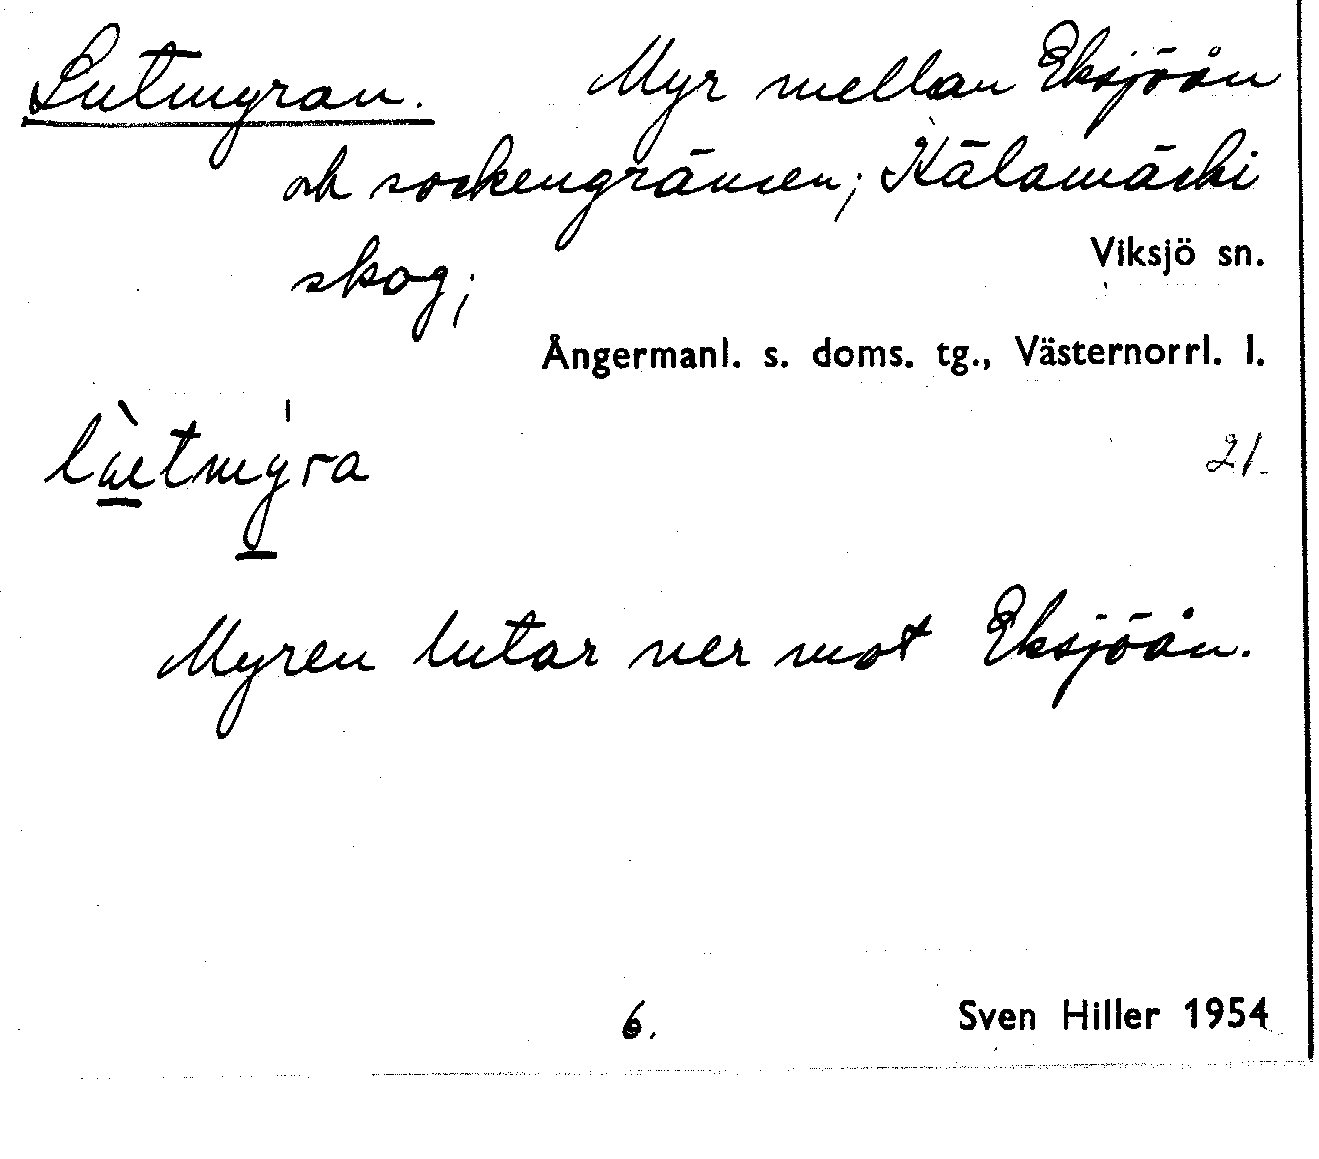 Lutmyran. Myr mellan Eksjöån
och sockengränsen; Kälamäcki
skog;
Viksjö sn.
Ångermanl. s. doms. tg., Västernorrl. l.
21.
Myren lutar ner mot Eksjöån.
6.
Sven Hiller 1954